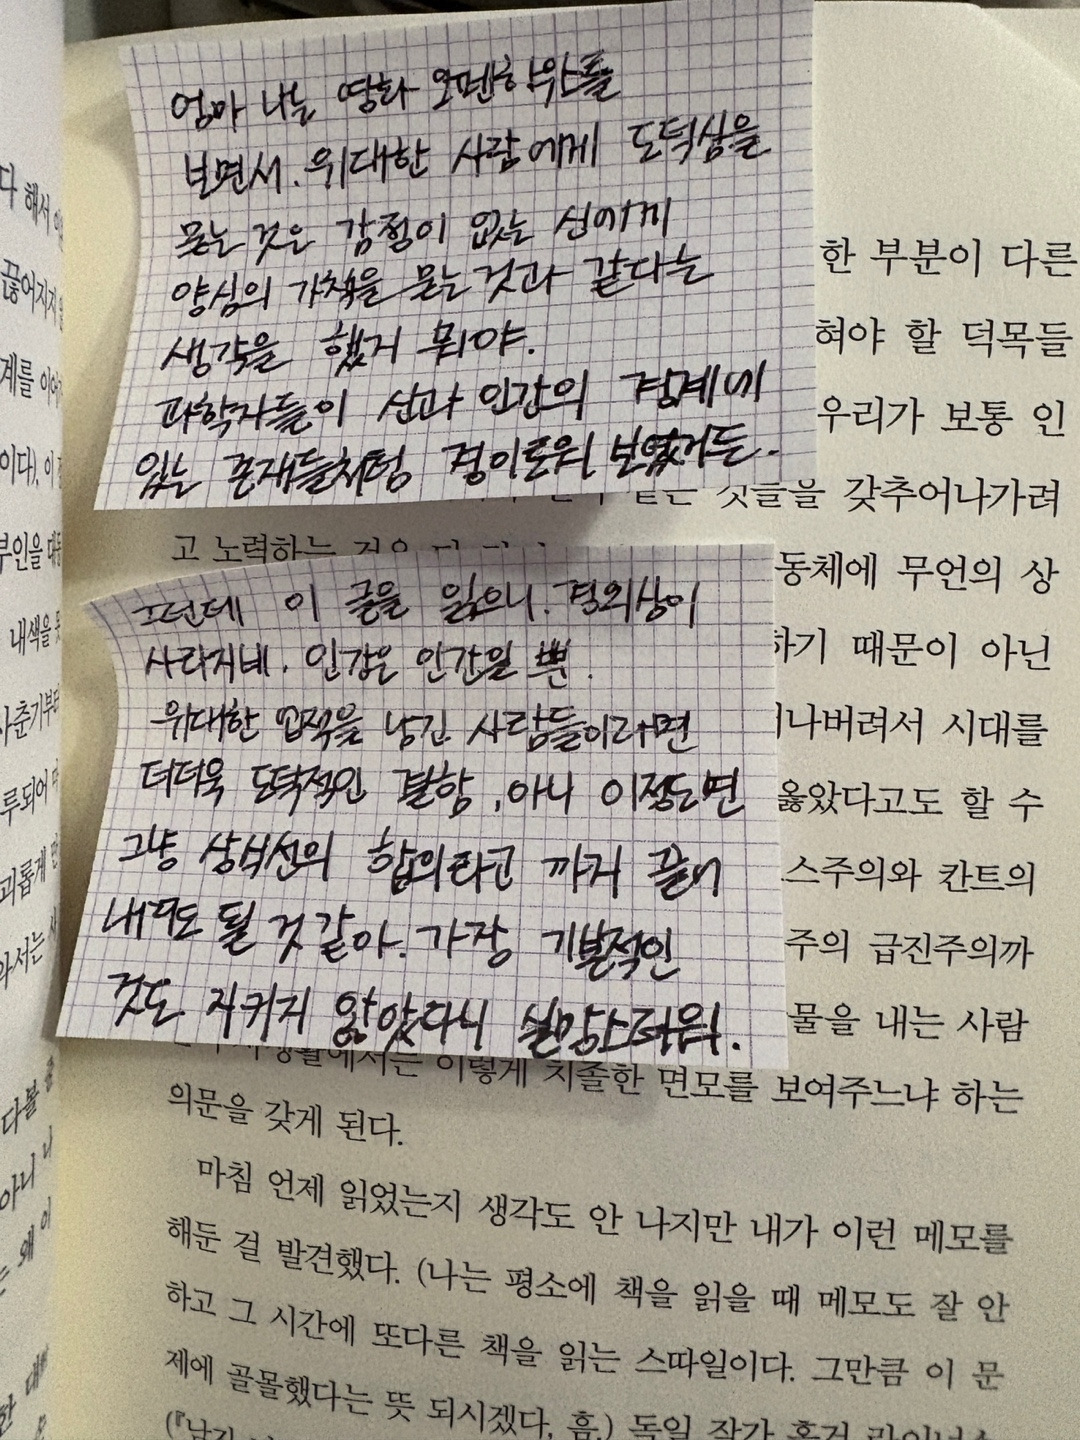 엄마 나는 영화 오펜하우스를
보면서. 위대한 사람에게 도덕심을
묻는 것은 감정이 없는 신에게
양심의 가책을 묻는것과 같다는
생각을 했지 뭐야.
과학자들이 신과 인간의 경계에
있는 존재들처럼 경이로워 보였거든.
그런데 이 글을 읽으니. 경외상이
사라지네. 인간은 인간일 뿐.
위대한 업적을 남긴 사람들이라면
더더욱 도덕적인 결함, 아니 이정도면
그냥 상식선의 합의라고 까지 끌어
내려도 될 것 같아. 가장 기본적인
것도 지키지 않았다니 실망스러워.
한 부분이 다른
혀야 할 덕목들
우리가 보통 인
것들을 갖추어나가려
고 노력하는 것은
동체에 무언의 상
하기 때문이 아닌
나버려서 시대를
옳았다고도 할 수
스주의와 칸트의
주의 급진주의까
물을 내는 사람
이렇게 치졸한 면모를 보여주느냐 하는
의문을 갖게 된다.
마침 언제 읽었는지 생각도 안 나지만 내가 이런 메모를
해둔 걸 발견했다. (나는 평소에 책을 읽을 때 메모도 잘 안
하고 그 시간에 또다른 책을 읽는 스따일이다. 그만큼 이 문
제에 골몰했다는 뜻 되시겠다, 흠.) 독일 작가